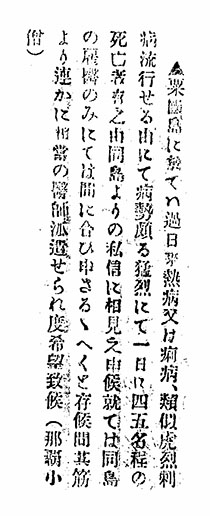 ▲粟國島に於てハ過日來熱病又は痢病、類似虎烈刺
病流行せる由にて病勢頗る猛烈にて一日に四五名程の
死亡者有之由同島よりの私信に相見え申候就ては同島
の雇醫のみにては間に合ひ申さるゝへくと存候間其筋
より速かに相當の醫師派遣せられ度希望致候(那覇小
僧)